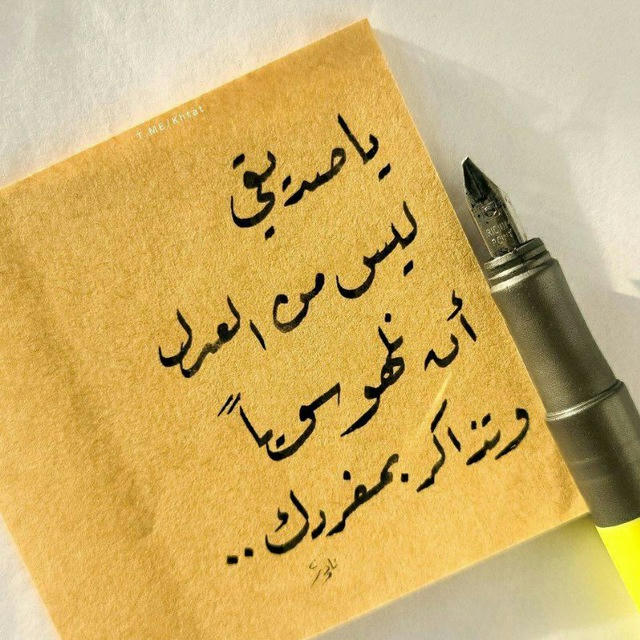 T.ME/Khtat
يا صديقي
ليس من العدل
أن نلهو سوياً
وتذاكر بمفردك..